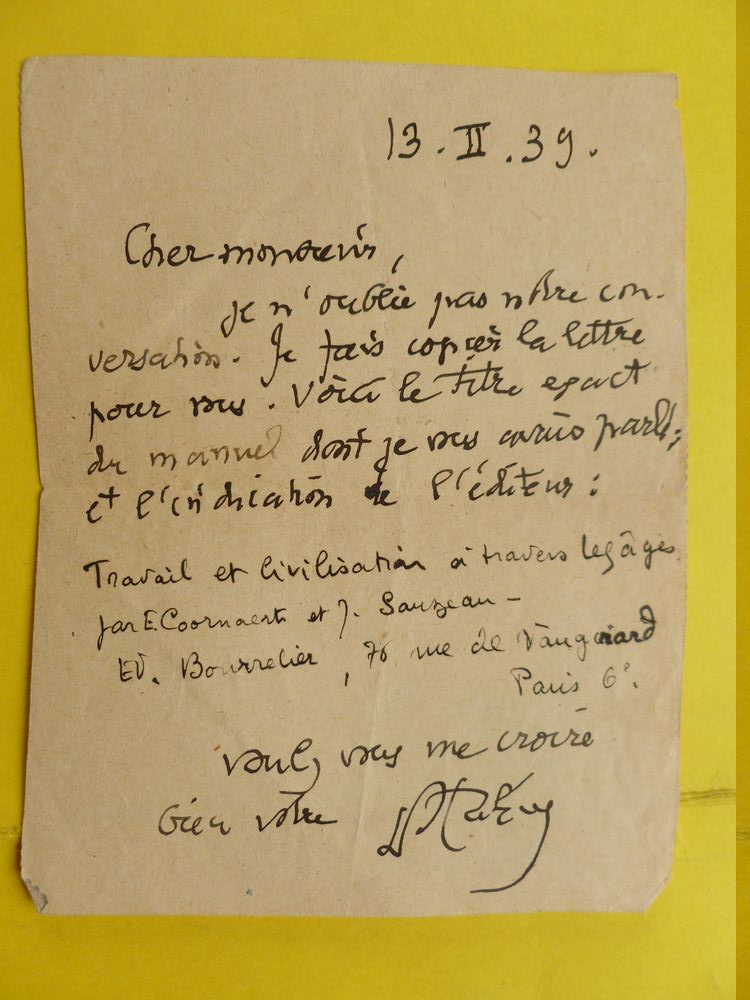 13.II.39.
Cher monsieur,
je n'oublie pas notre con-
versation. Je fais copier la lettre
pour vous. Voici le titre exact
du manuel dont je vous avais parlé,
et l'indication de l'éditeur :
Travail et civilisation à travers les âges
par E. Coornaert et J. Sauzeau –
Ed. Bourrelier, 76 rue de Vaugirard
Paris 6e.
Voulez vous me croire
bien vôtre